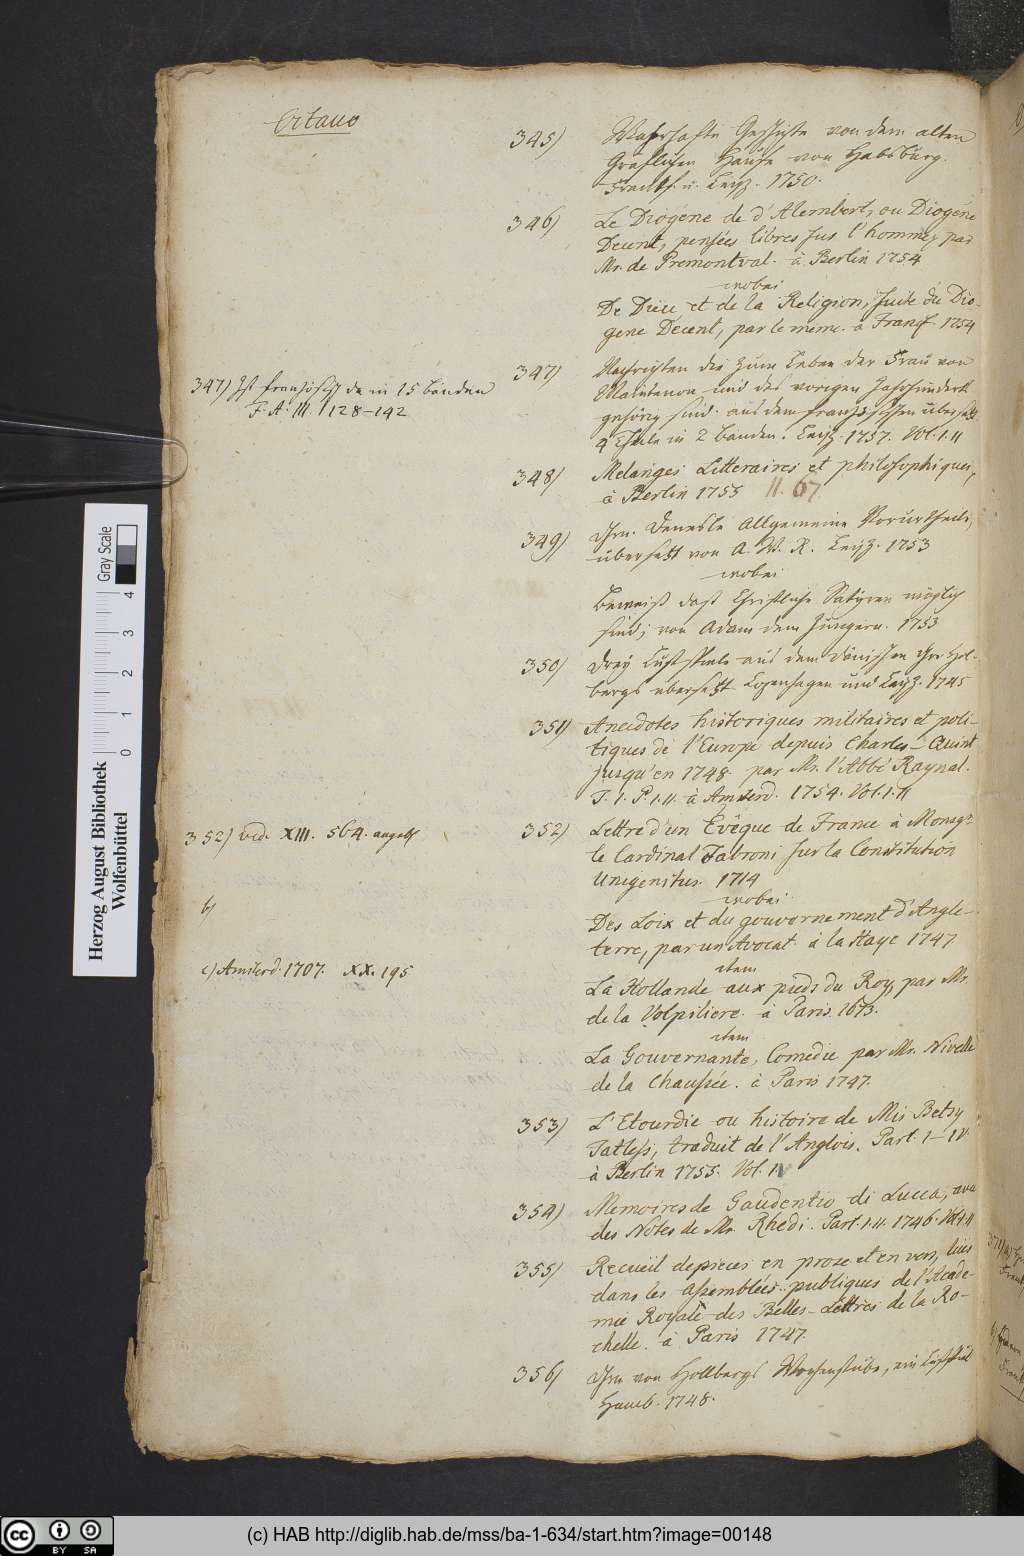 Octauo
345) Wahrhafte Geschichte von dem alten
Gräflichen Hause von Habsburg.
Franckf. u. Leipz. 1750.
346) Le Diogéne de d'Alembert, ou Diogéne
Decent, pensées libres sur l'homme, par
Mr. de Premontval. à Berlin 1754
wobei
De Dieu et de la Religion, suite du Dio-
gene Décent, par le meme. à Francf. 1754
347) Nachrichten die zum Leben der Frau von
Maintenon und des vorigen Jahrhunderts
gehörig sind. aus dem französischen übersetzt
4 Theile in 2 bänden. Leipz. 1757. Vol. I. II
347) Ist französisch da in 15 bänden
F. A: III. 128-142
348) Melanges Litteraires et philosophiques,
à Berlin 1755 II. 67
349) Hrn. Allgemeine Vorurtheile,
übersetzt von A. W. R. Leipz. 1753
wobei
Beweiß daß Christliche Satyren möglich
sind; von Adam dem Jüngern. 1753
350) Drey Lustspiele aus dem dänischen Hrn Hol-
bergs übersetzt. Copenhagen und Leipz. 1745
351) Anecdotes historiques militaires et poli-
tiques de l'Europe depuis Charles-Quint
jusqu'en 1748. par Mr. l'Abbé Raynal.
T. I. P. I. II. à Amsterd. 1754. Vol. I. II
352) Lettre d'un Evêque de France à Monsgr
le Cardinal Fabroni sur la Constitution
Unigenitus. 1714
352) vid. XIII. 564.
wobei
b)
Des Loix et du gouvernement d'Angle-
terre, par un Avocat. à la Haye 1747
c) Amsterd. 1707. XX. 195
item
La Hollande aux pieds du Roy, par Mr.
de la Volpiliere. à Paris. 1673.
item
La Gouvernante, Comedie par Mr. Nivelle
de la Chaussée. à Paris 1747.
353) L'Etourdie ou histoire de Mis Betsy
Tatless, traduit de l'Anglois. Part. I-IV.
à Berlin 1755. Vol. I
354) Memoires de Gaudentio di Lucca, avec
des Notes de Mr. Rhedi. Part. I. II. 1746. Vol. I. II
355) Recueil de pieces en prose et en vers, lües
dans les Assemblées publiques de l'Acade-
mie Royale des Belles-Lettres de la Ro-
chelle. à Paris 1747.
356) Hrn von Hollbergs Wochenstube, ein Lustspiel
Hamb. 1748.
Herzog August Bibliothek
Wolfenbüttel
Gray Scale
0 1 2 3 4
cc BY SA
(c) HAB http://diglib.hab.de/mss/ba-1-634/start.htm?image=00148